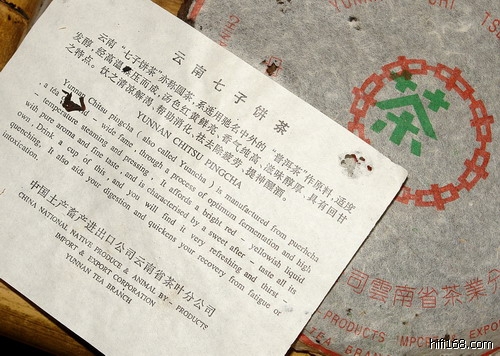 云南七子饼茶
云南“七子饼茶”亦称圆茶,系选用驰名中外的“普洱茶”作原料,适度
发酵,经高温蒸压而成,汤色红黄鲜亮,香气纯高,滋味醇厚,具有回甘
之特点。饮之清凉解渴,帮助消化,祛去除疲劳,提神醒酒。
YUNNAN CHITSU PINGCHA
Yunnan Chitsu pingcha ( also called Yuancha ) is manufactured from puerhcha
, a wide – fame , through a process of optimum fermentation and high
– temperature steaming and pressing . It affords a bright red – yellowish liquid
with pure aroma and fine taste , and is characterised by a sweet after – taste all its
own . Drink a cup of this , and you will find it very refreshing and thirst –
quenching. It also aids your digestion and quickens your recovery from fatigue or
intoxication.
中国土产畜产进出口公司云南省茶叶分公司
CHINA NATIONAL NATIVE PRODUCE & ANIMAL BY – PRODUCTS
IMPORT & EXPORT CORPORATION
YUNNAN TEA BRANCH
YUNNAN
茶
司雲南省茶業
PRODUCTS IMPORT EXPO
BRANCH
hifi168.com